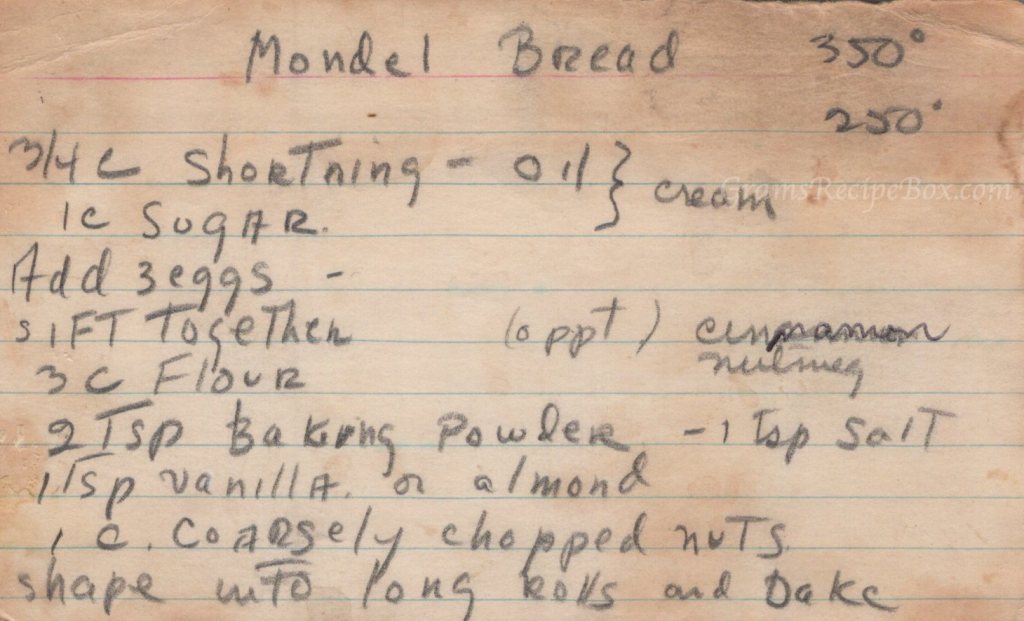 Mondel Bread 350°
250°
3/4 C Shortning - oil } cream
1c Sugar.
GramsRecipeBox.com
Add 3 eggs -
sift Together (oppt) cinnamon
nutmeg
3 C Flour
2 Tsp Baking Powder - 1 tsp salt
1 Tsp vanilla. or almond
1 c. Coarsely chopped nuts.
shape into long rolls and bake